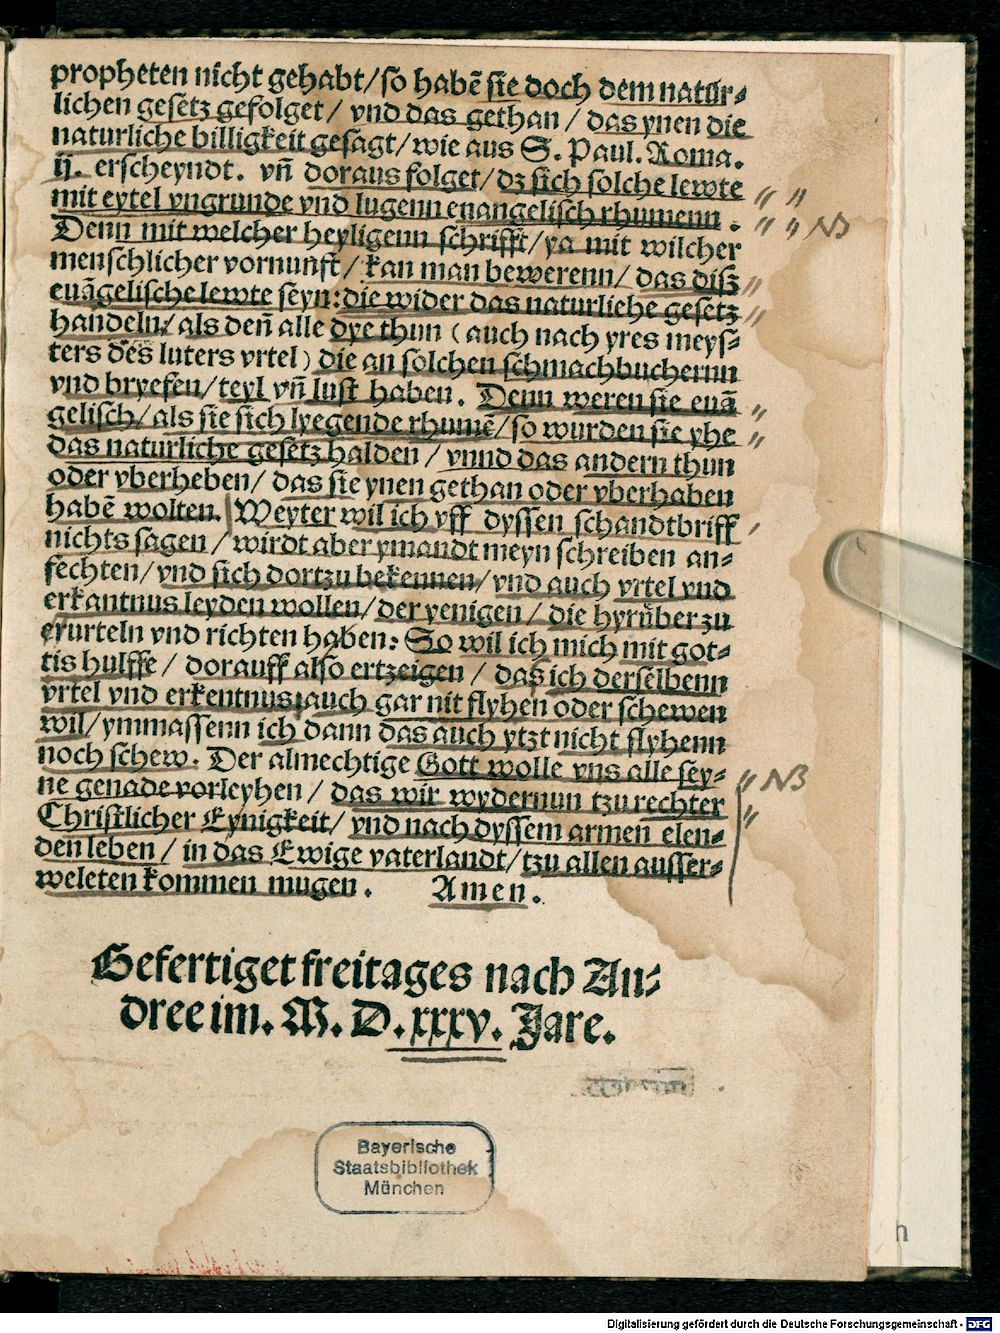 propheten nicht gehabt/so habē sie doch dem natůr⸗
lichen gesetz gefolget/ vnd das gethan / das ynen die
naturliche billigkeit gesagt/wie aus S. Paul. Roma.
ij. erscheyndt. vn̄ doraus folget/dz sich solche lewte
mit eytel vngrunde vnd lugenn euangelisch rhumenn .
Denn mit welcher heyligenn schrifft/ya mit wilcher
menschlicher vornunft/ kan man bewerenn/ das diß
euāgelische lewte seyn:die wider das naturliche gesetz
handeln/als den̄ alle dye thun (auch nach yres meys⸗
ters des luters vrtel) die an solchen schmachbuchernn
vnd bryefen/teyl vn̄ lust haben. Denn weren sie euā
gelisch/als sie sich lyegende rhumē/so wurden sie yhe
das naturliche gesetz halden / vnnd das andern thun
oder vberheben/ das sie ynen gethan oder vberhaben
habē wolten. Weyter wil ich vff dyssen schandtbriff
nichts sagen / wirdt aber ymandt meyn schreiben an⸗
fechten/vnd sich dortzu bekennen/vnd auch vrtel vnd
erkantnus leyden wollen/der yenigen / die hyrůber zu
erurteln vnd richten haben: So wil ich mich mit got⸗
tis hulffe / dorauff also ertzeigen / das ich derselbenn
vrtel vnd erkentnus auch gar nit flyhen oder schewen
wil/ymmassenn ich dann das auch ytzt nicht flyhenn
noch schew. Der almechtige Gott wolle vns alle sey⸗
ne genade vorleyhen / das wir wydernun tzu rechter
Christlicher Eynigkeit/ vnd nach dyssem armen elen⸗
den leben / in das Ewige vaterlandt/tzu allen ausser⸗
weleten kommen mugen . Amen.
NB
NB
Gefertiget freitages nach An⸗
dree im. M. D. xxxv. Jare.
Bayerische
Staatsbibliothek
München
Digitalisierung gefördert durch die Deutsche Forschungsgemeinschaft - DFG